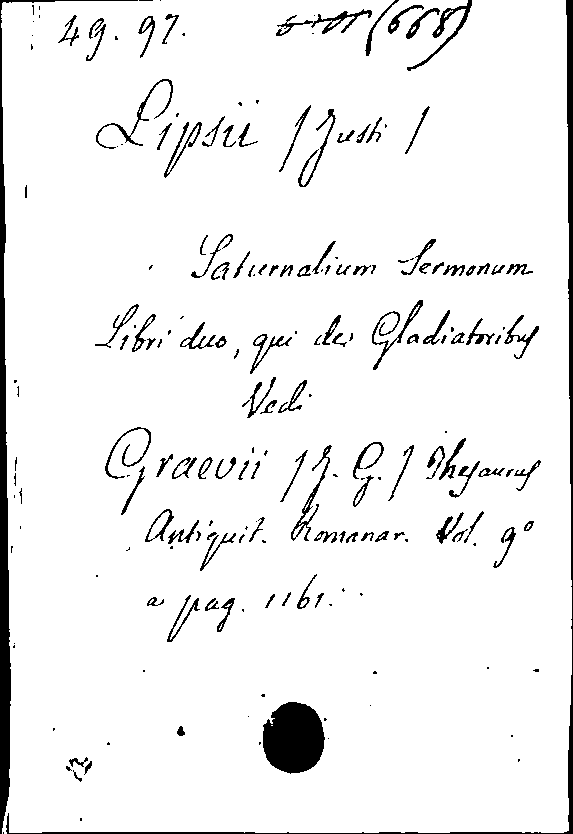 49. 97. (668)
Lipsii / Justi /
Saturnalium Sermonum
Libri duo, qui de Gladiatoribus
Vedi
Graevii / J. G. / Thesaurus
Antiquit. Romanar. Vol. 9º
a pag. 1161.